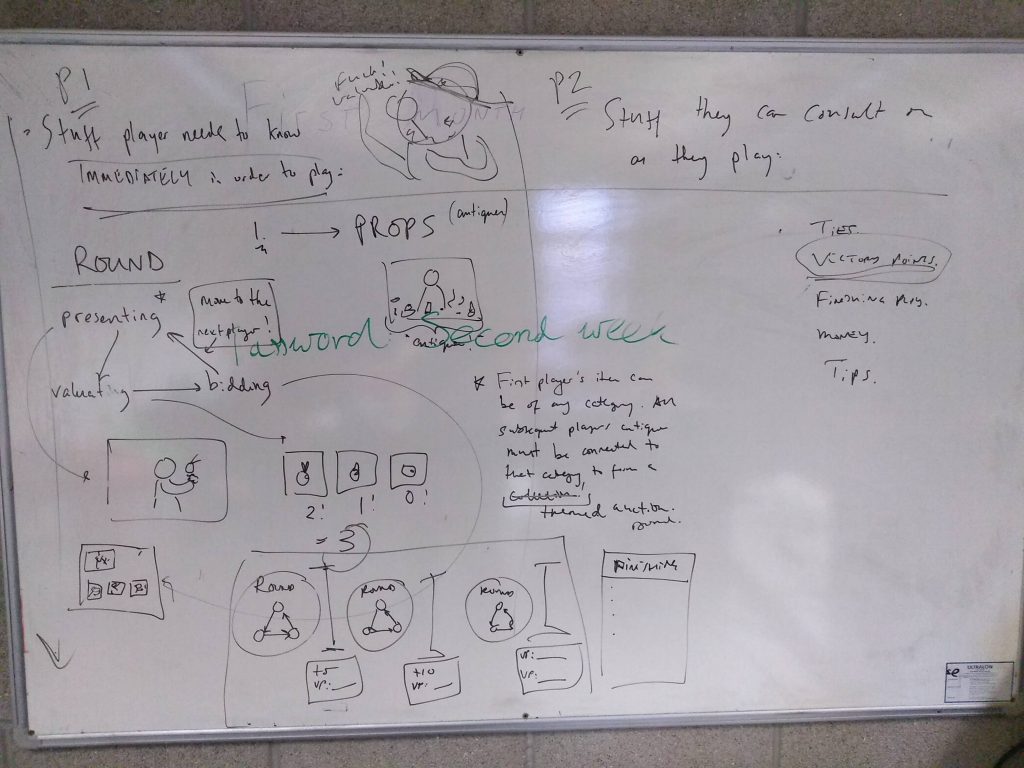 P1
Fuck!
· Stuff player needs to know
IMMEDIATELY in order to play:
1. → PROPS (antiques)
ROUND
presenting *
move to the
next player!
valuating → bidding
antiques
Password Second week
2! 1! 0!
= 3
Round Round Round
+5
VP: __
+10
VP: __
VP: __
VP: __
FINISHING
P2
Stuff they can consult on
as they play:
TIES.
VICTORY POINTS.
Finishing play.
money.
Tips.
* First player's item can
be of any category. All
subsequent players antique
must be connected to
that category to form a
themed auction
round.
ULTRALON